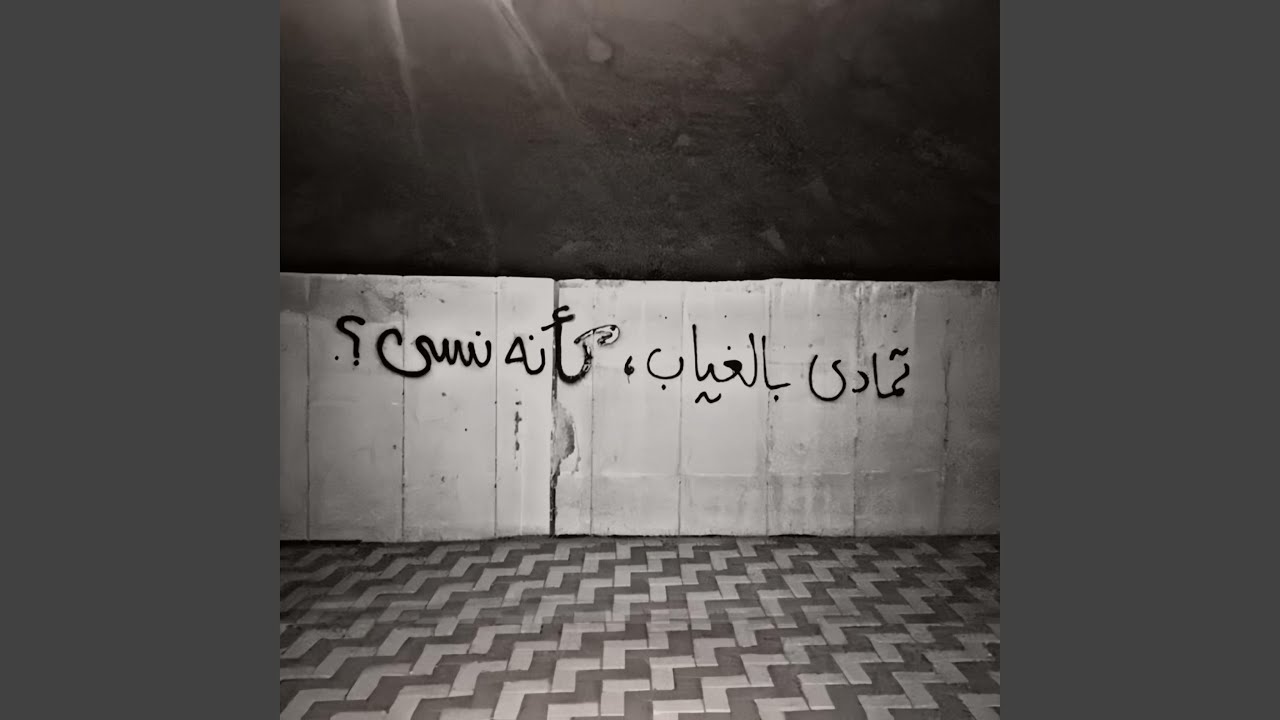 تمادى بالغياب، كأنه نسى؟